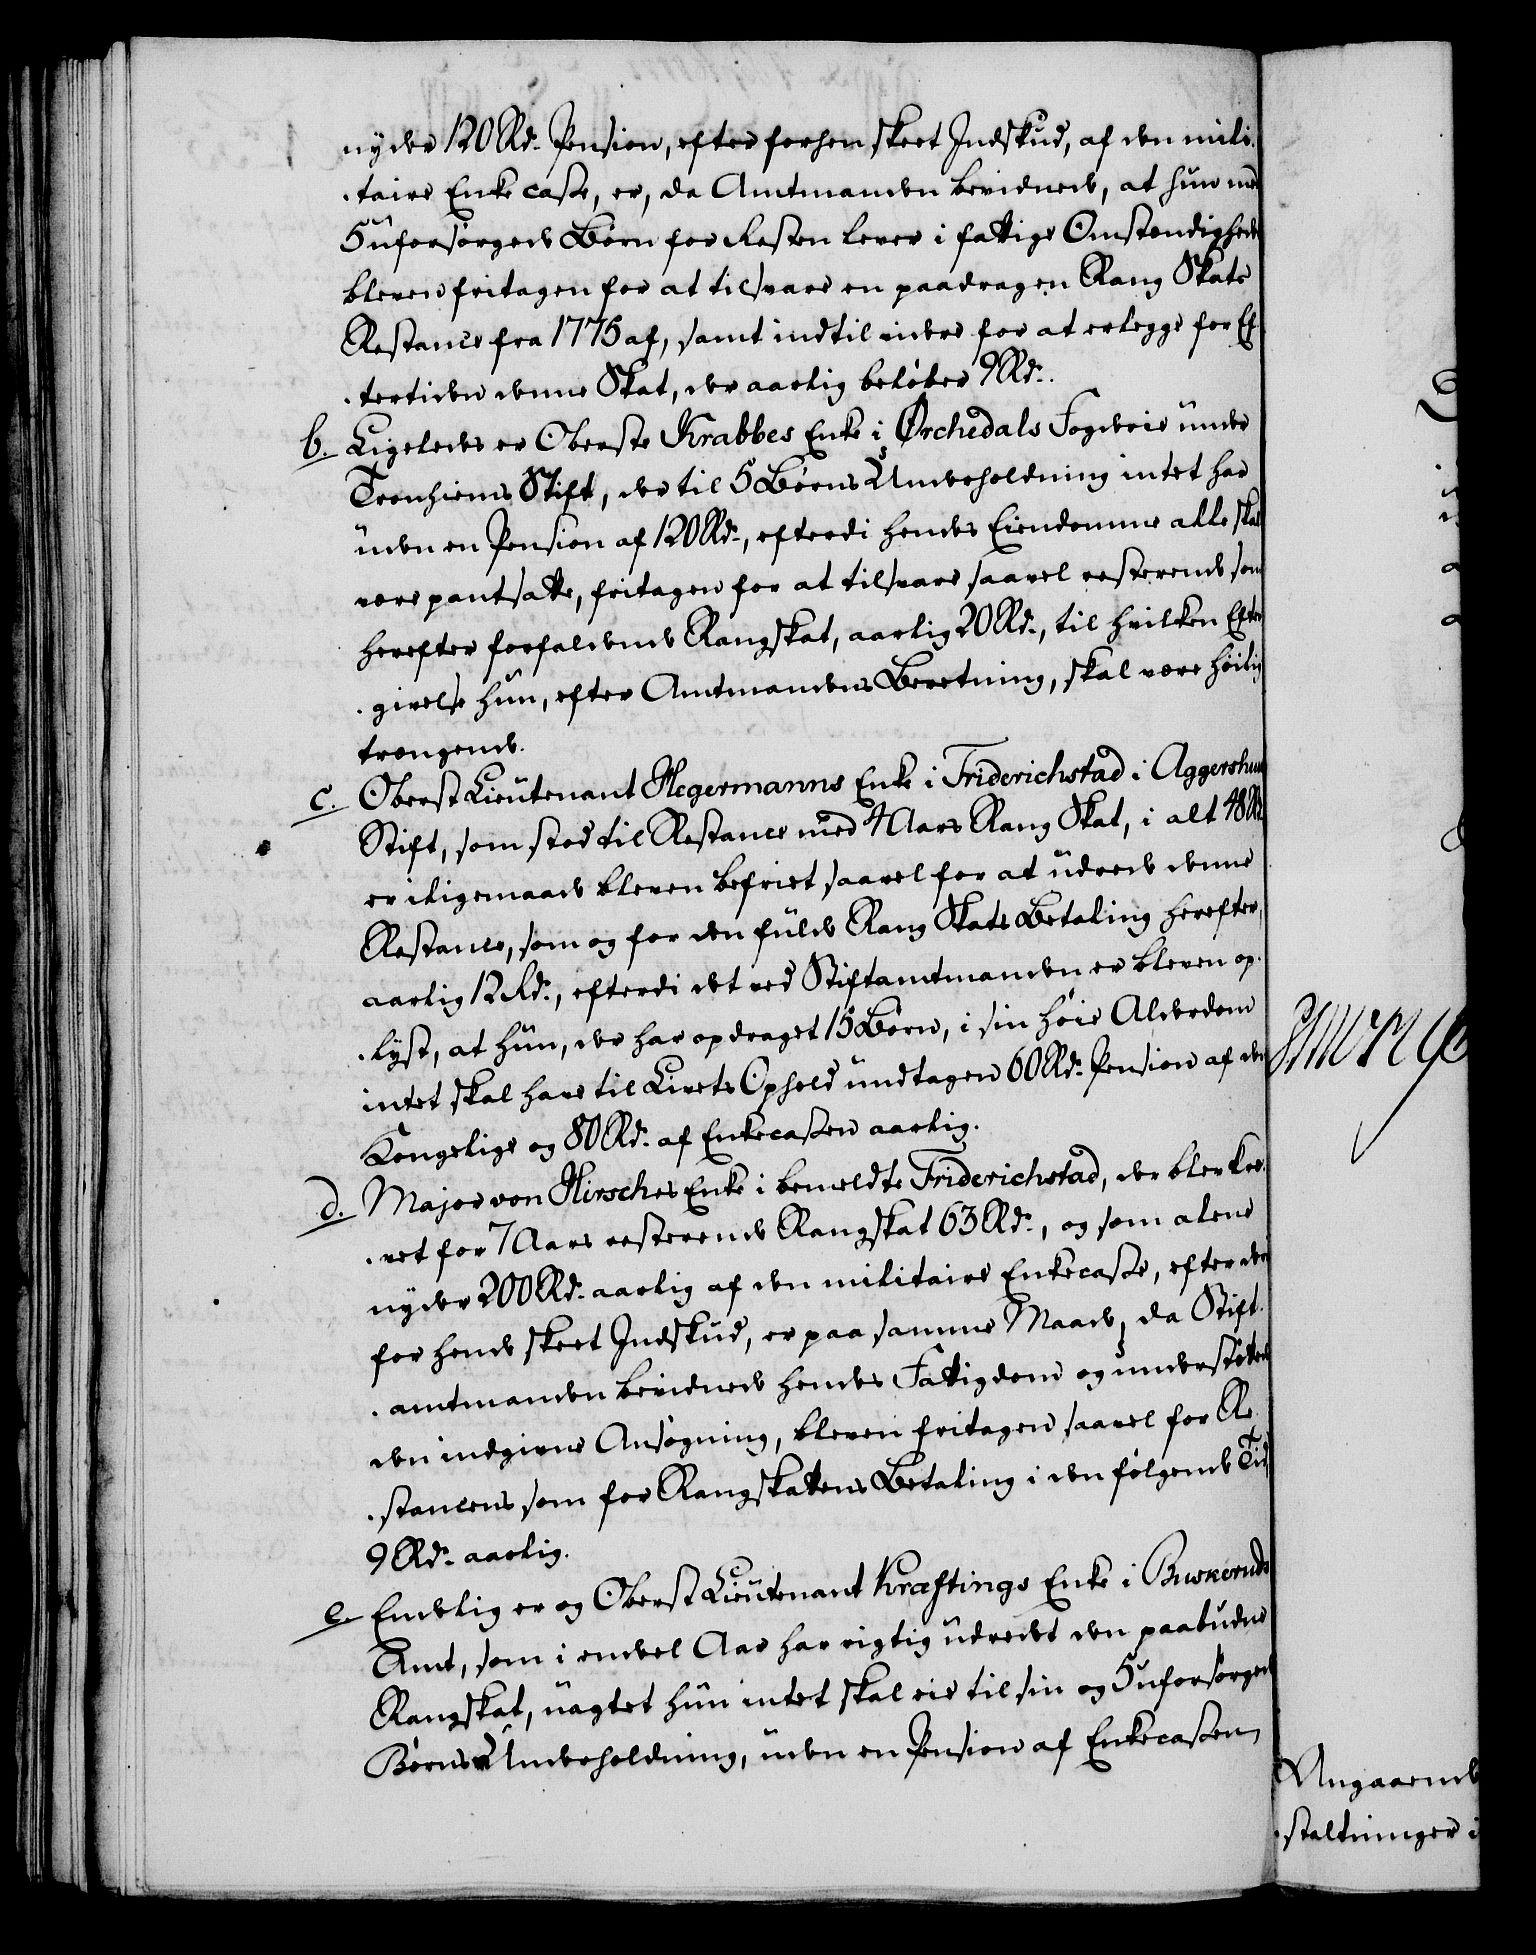 nyder 120 Rd. Pension, efter forhen skeet Indskud, af den mili-
-taire Enke casse, er, da Amtmanden bevidnede, at hun med
5 uforsørgede Børn for Resten lever i fattige Omstændighed
bleven fritagen for at tilsvare en paadragen Rang Skats
Restance fra 1775 af, samt indtil videre for at erlegge for Ef-
-tertiden denne Skat, der aarlig beløber 9 Rd.
b. Ligeledes er Oberste Krabbes Enke i Ørchedals Fogderie under
Tronhiems Stift, der til 5 Børns Underholdning intet har
uden en Pension af 120 Rd., efterdi hendes Eiendomme alle skal
være pantsatte, fritagen for at tilsvare saavel resterende som
herefter forfaldende Rangskat, aarlig 20 Rd., til hvilken Efter-
-givelse hun, efter Amtmandens Beretning, skal være høilig
trængende.
c. Oberst Lieutenant Hegermanns Enke i Friderichstad i Aggershuus
Stift, som stod til Restance med 4 Aars Rang Skat, i alt 48 Rd.
er iligemaade bleven befriet saavel for at udrede denne
Restance, som og for den fulde Rang Skats Betaling herefter,
aarlig 12 Rd., efterdi det ved Stiftamtmanden er bleven op-
-lyst, at hun, der har opdraget 15 Børn, i sin høie Alderdom
intet skal have til Livets Ophold undtagen 60 Rd. Pension af den
Kongelige og 80 Rd. af Enkecassen aarlig.
d. Major von Hirsches Enke i bemeldte Friderichstad, der blev kræ-
-vet for 7 Aars resterende Rangskat 63 Rd., og som alene
nyder 200 Rd. aarlig af den militaire Enkecasse, efter det
for hende skeet Indskud, er paa samme Maade, da Stift-
-amtmanden bevidnede hendes Fattigdom og understøttede
den indgivne Ansøgning, bleven fritagen saavel for Re-
-stancens som for Rangskattens Betaling i den følgende Tid,
9 Rd. aarlig.
e. Endelig er og Oberst Lieutenant Kræftings Enke i Buskeruds
Amt, som i endeel Aar har rigtig udredet den paabudne
Rangskat, uagtet hun intet skal eie til sin og 5 uforsørgede
Børns Underholdning, uden en Pension af Enkecassen
Angaaende
-staltninger i